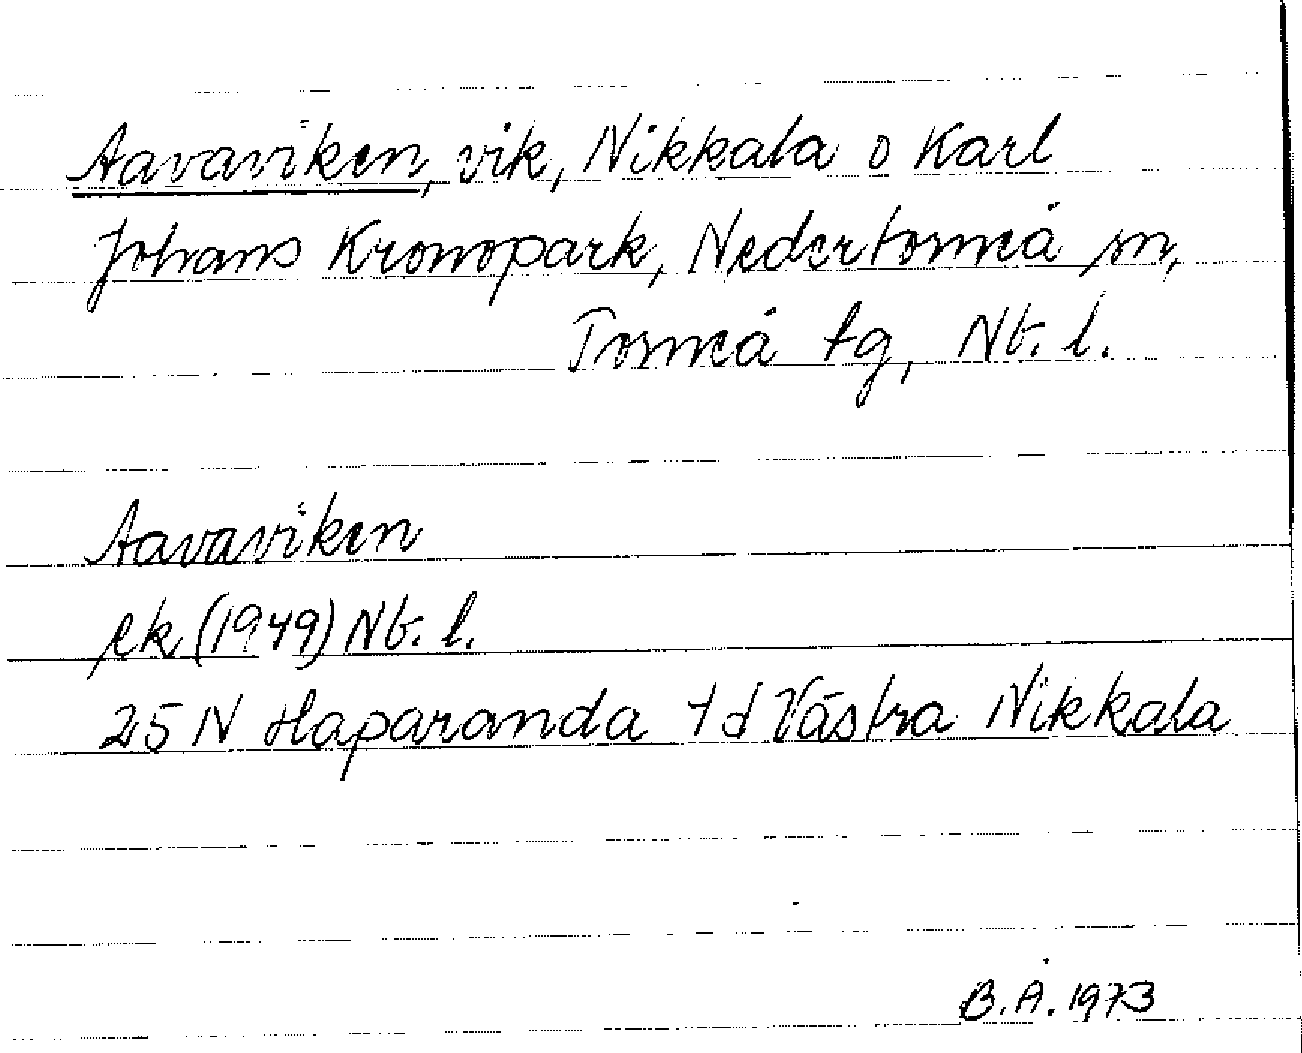 Aavaviken, vik, Nikkala o Karl
Johans Kronopark, Nedertorneå sn,
Torneå tg, Nb. l.
Aavaviken
ek (1949) Nb. l.
25 N Haparanda td Västra Nikkala
B.Å. 1973